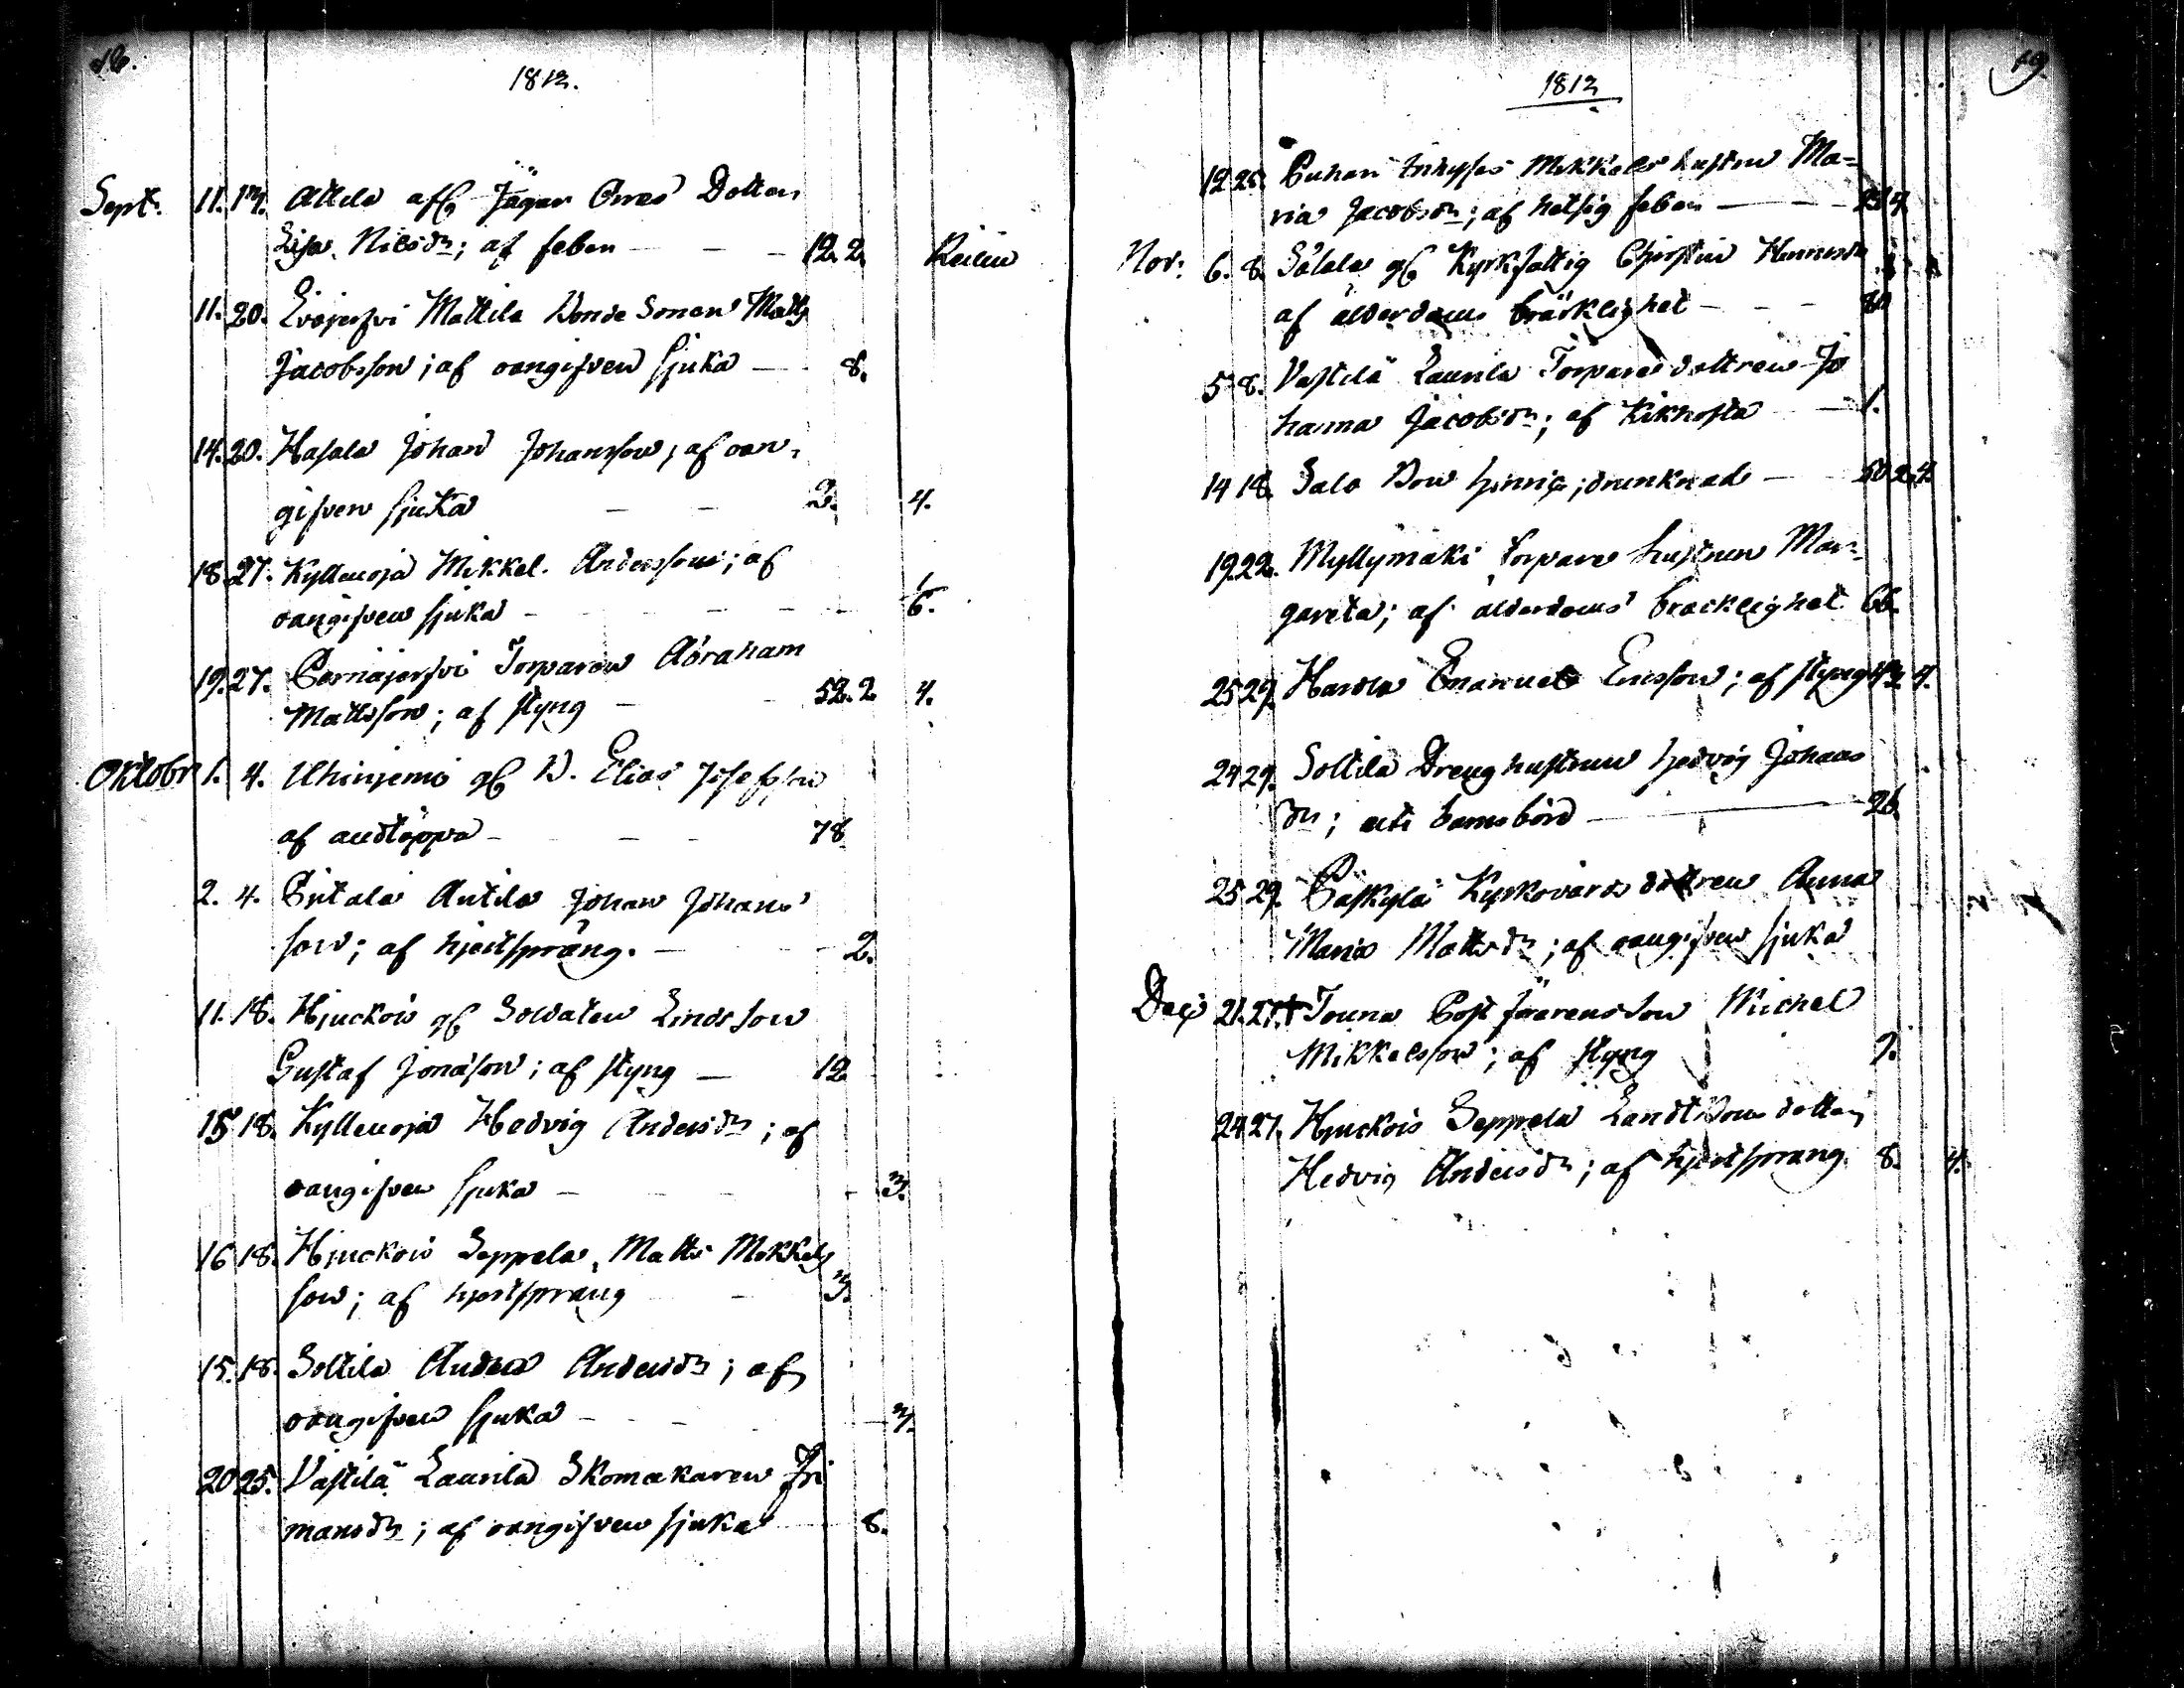 1812.
Sept. 11. 13. Attila afl. Jägar Dotter
Lisa Nilsdr; af feben — — 12. 2. Keilen
11. 20. Evojerfvi Mattila Bonde Sonen Matts
Jacobsson; af oangifven sjuka — 8.
14. 20. Hasala Johan Johansson; af oan-
gifven sjuka — — 2. 4.
18. 27. Kyllenoja Mikkel Andersson; af
oangifven sjuka — — — 6.
19. 27. Torparen Abraham
Mattsson; af styng — 52. 2 4.
Oktobr 1. 4. Uhinjemi gl. B. Elias Josefsson
af andtäppa — — — 78
2. 4. Antila Johan Johans
son; af hjertsprång. — 2.
11. 18. Hjuckois gl. Soldaten Linds son
Gustaf Jonasson; af styng — 12
15 18. Kyllenoja Hedvig Andersdr; af
oangifven sjuka — — 3.
16 18. Hjuckois Seppela, Matts Mikkels
son; af hjertsprång — 3.
15. 18. Soltila Andersdr; af
oangifven sjuka — — 3.
20 25. Vastilä Laurila Skomakaren Fri
mansdr; af oangifven sjuka 8.
1812
19
12 25. Mikkels hustru Ma=
ria Jacobsdr; af hetsig feber —
Nov: 6. 8. Sälälä gl. Kyrkfattig Christin
af ålderdoms bräcklighet — — 80
5 8. Vastilä Laurila Torpare dottren Jo
hanna Jacobsdr; af Kikhosta — 1.
14 18. Salo Bon Hinric; drunknade — 50 2. 4.
19. 22. Myllymäki Torpare hustrun Mar-
gareta; af ålderdoms bräcklighet 66.
25 29. Emanuel Ericsson; af styng 43. 4.
24 29. Soltila Dreng hustrun Hedvig Johans
dr; uti barnsbörd — 26.
25 29. Päskylä Kyrkovärds dottren Anna
Maria Mattsdr; af oangifven sjuka
Dec 21. 27. Jouna Post förarens son Michel
Mikkelsson; af styng 9.
24 27. Hjuckois Seppela Landtbon dotter
Hedvig Andersdr; af hjertsprång 8. 4.